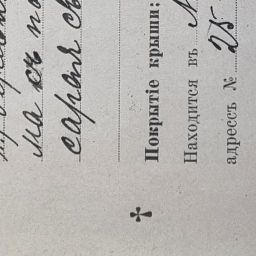 ма съ по
сарая св
Покрытіе крыши:
Находится въ
адрессъ № 25